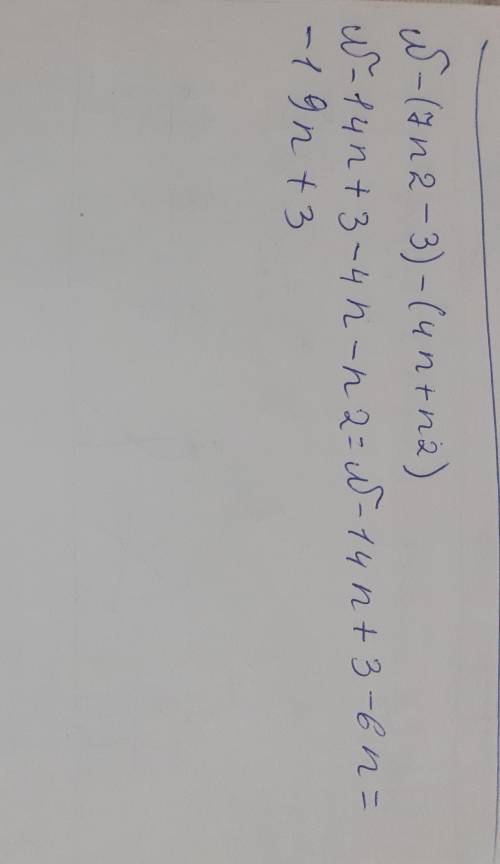 N-(7n2-3)-(4n+n2)
N-14n+3-4n-n2=N-14n+3-6n=
-19n+3